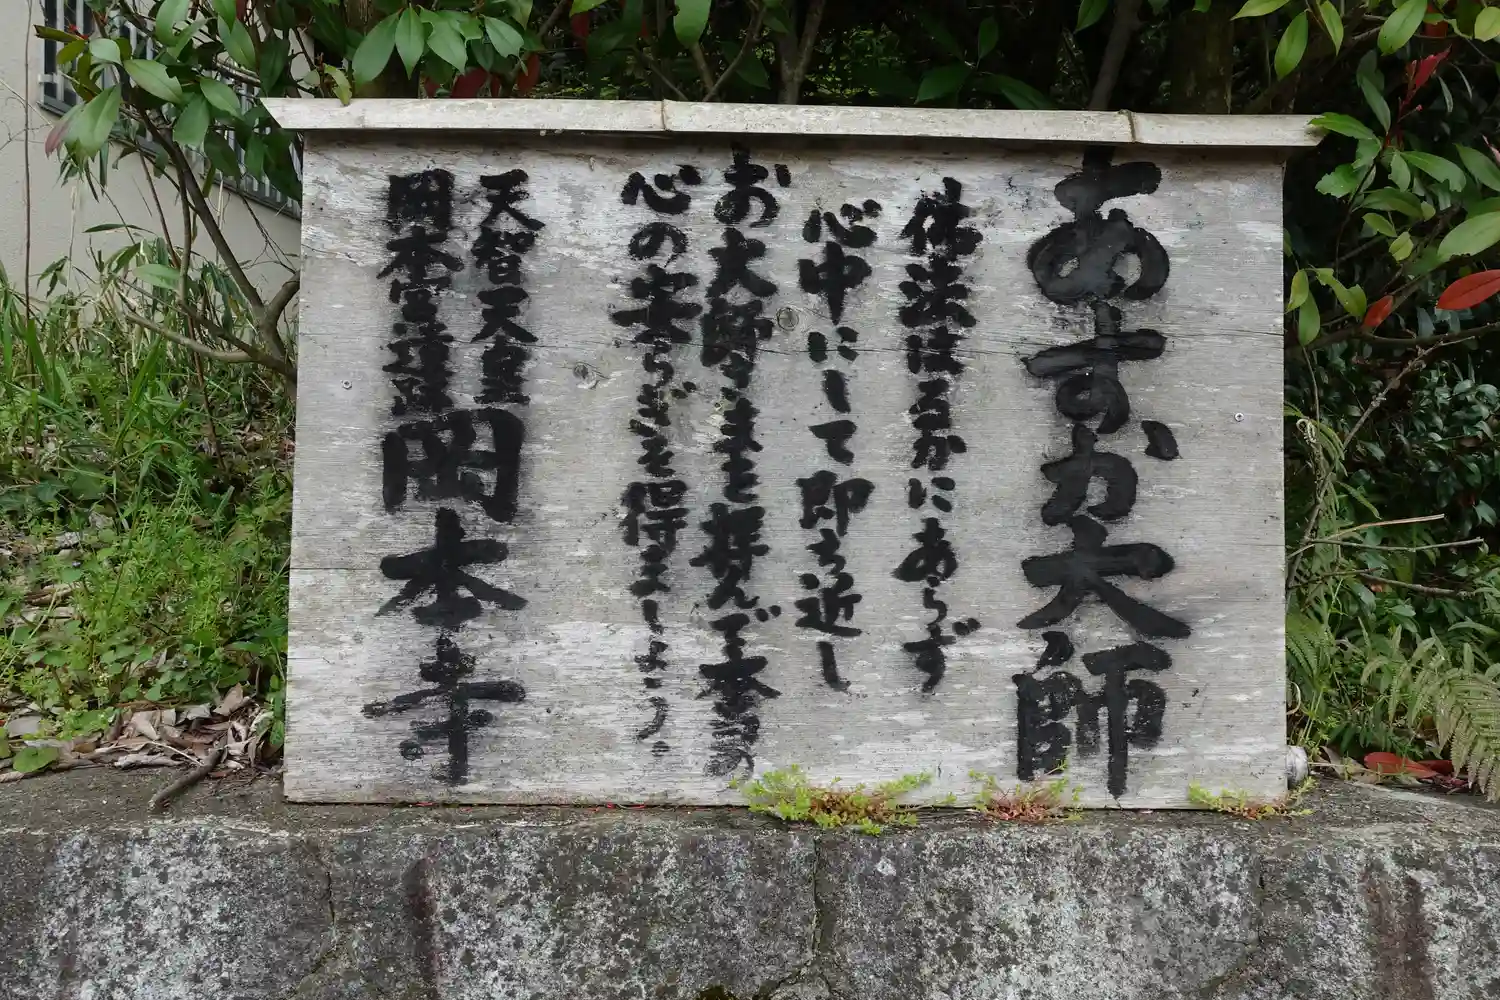 あすか大師
佛法はるかにあらず
心中にして即ち近し
お大師さまを拝んで本当の
心の安らぎを得ましょう。
天智天皇
岡本宮遺跡
岡本寺